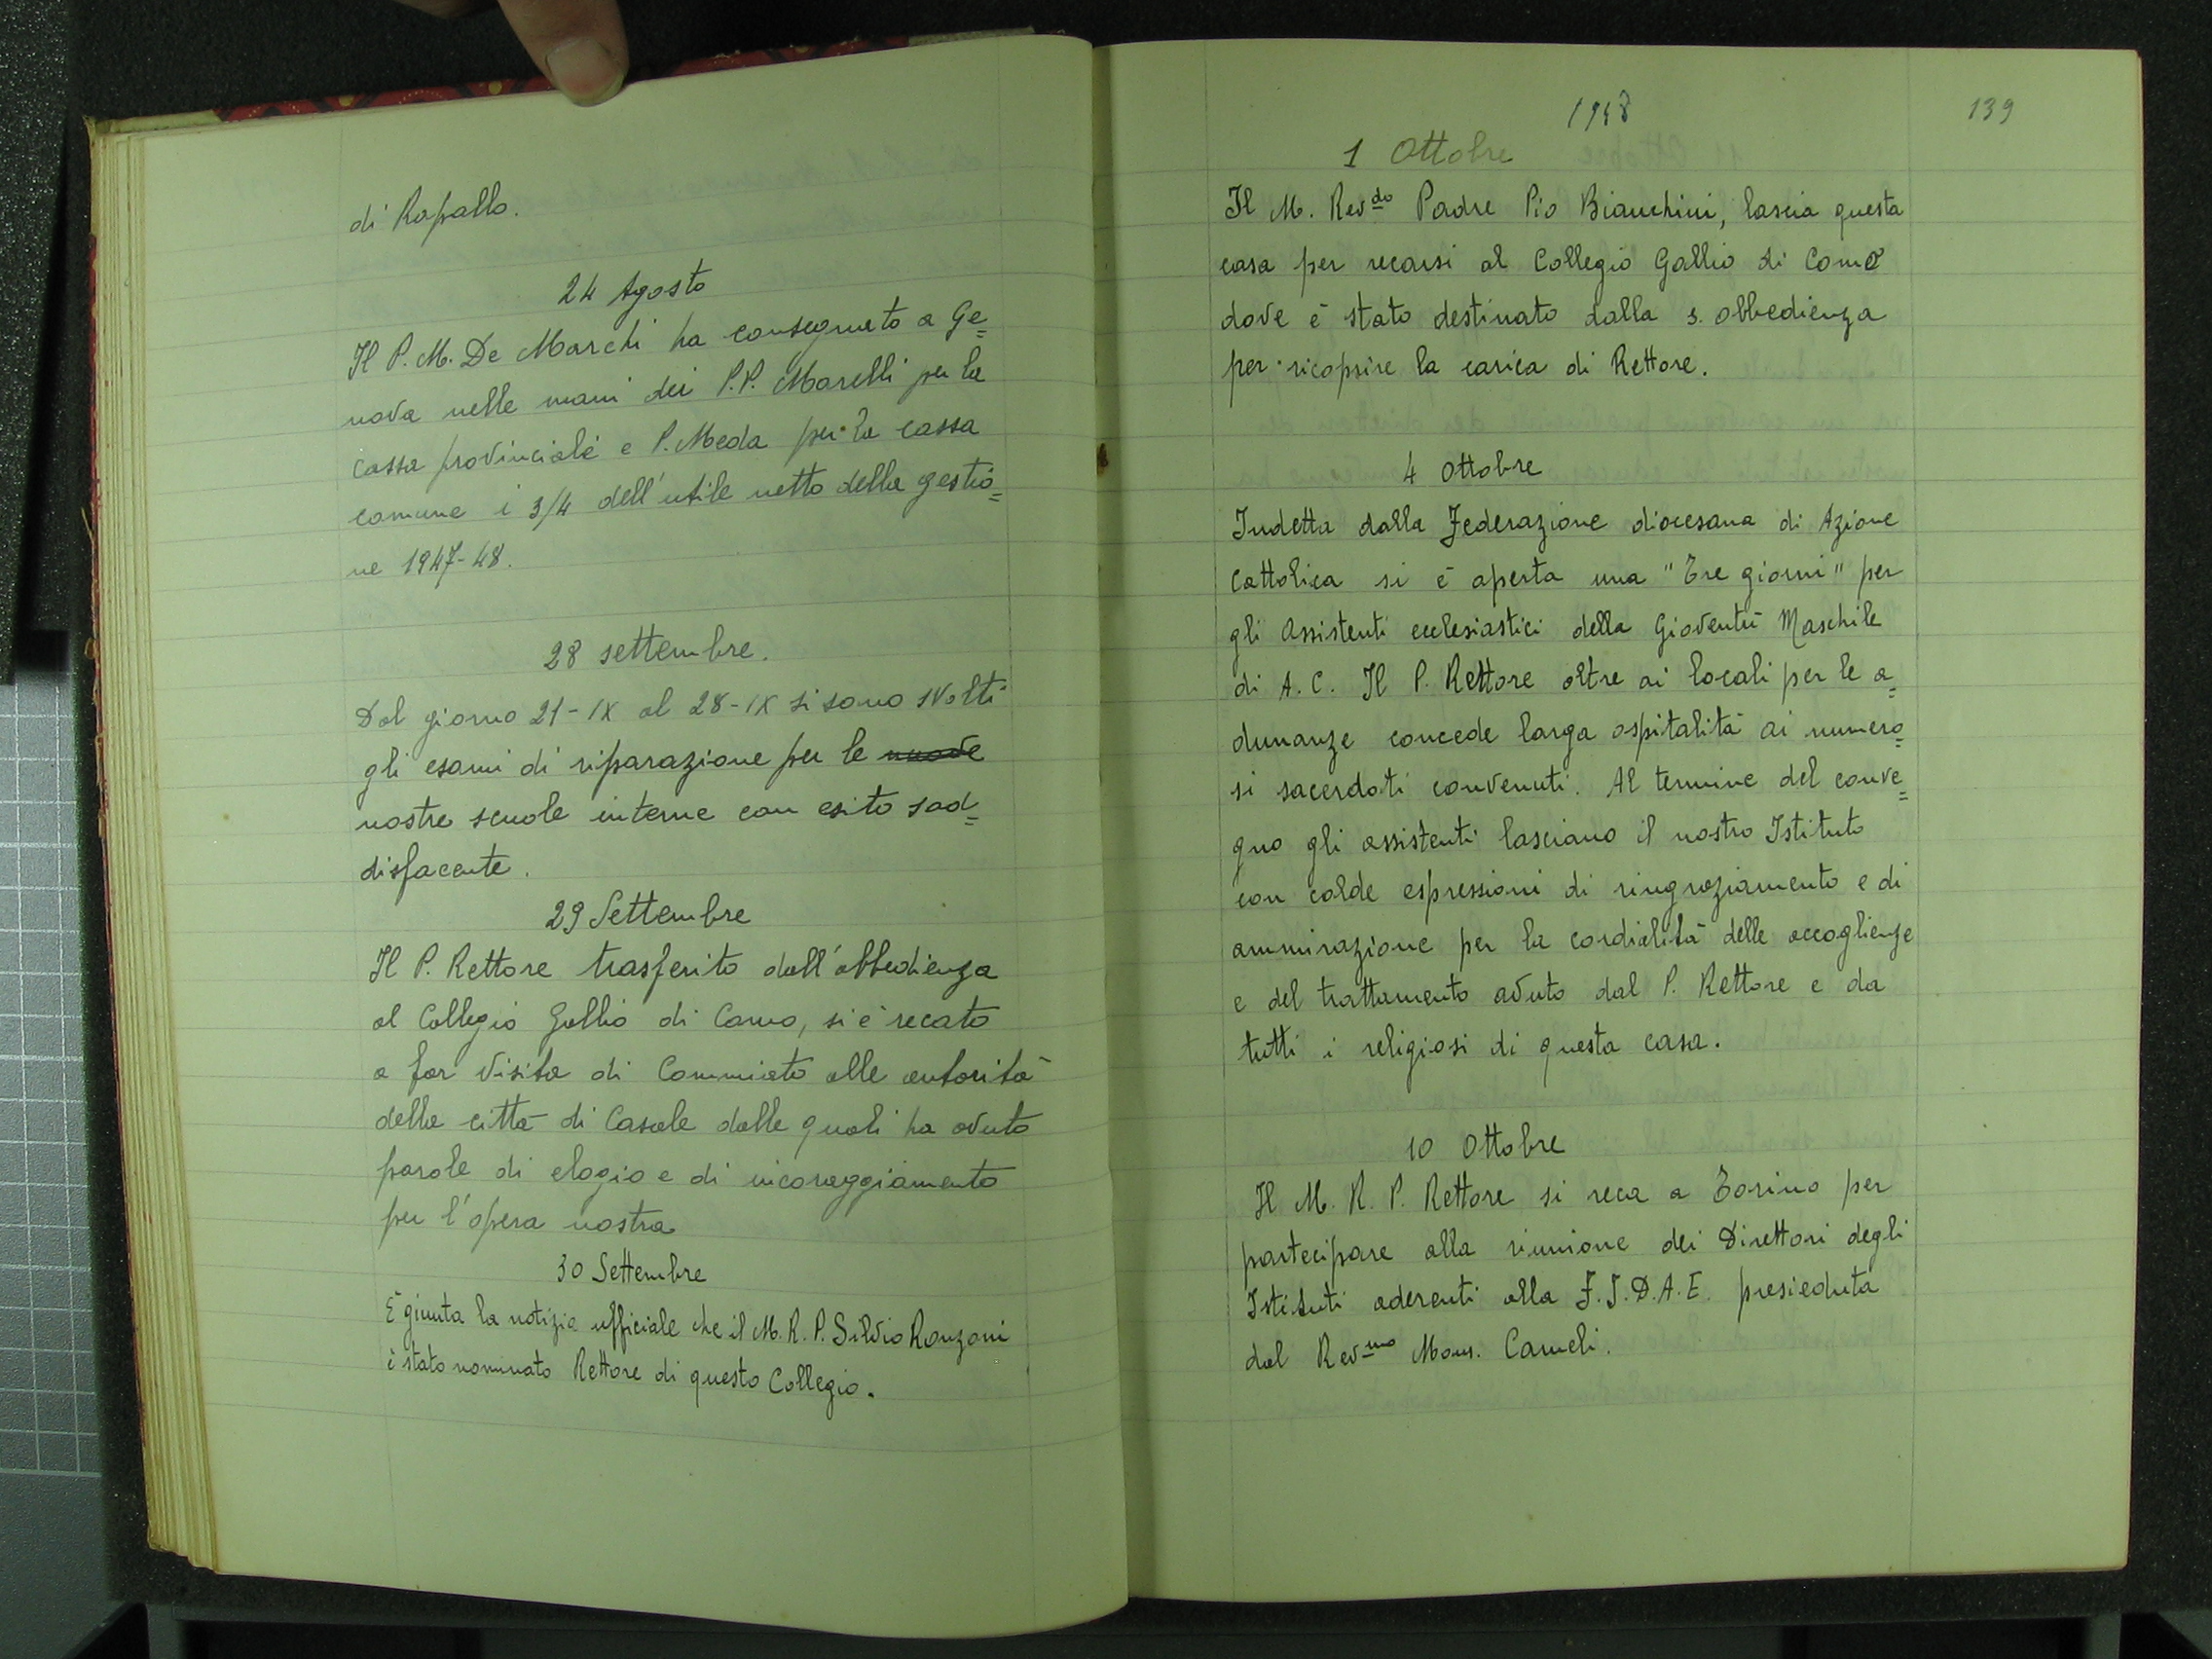 di Rapallo.
24 Agosto
Il P. M. De Marchi ha consegnato a Ge=
nova nelle mani dei P.P. Marelli per la
cassa provinciale e P. Meda per la cassa
comune i 3/4 dell'utile netto della gestio=
ne 1947-48.
28 settembre.
Dal giorno 21-IX al 28-IX si sono svolti
gli esami di riparazione per le nuove
nostre scuole interne con esito sod=
disfacente.
29 Settembre
Il P. Rettore trasferito dall'obbedienza
al Collegio Gallio di Como, si è recato
a far visita di Commiato alle autorità
della città di Casale dalle quali ha avuto
parole di elogio e di incoraggiamento
per l'opera nostra
30 Settembre
È giunta la notizia ufficiale che il M. R. P. Silvio Ronzoni
è stato nominato Rettore di questo Collegio.
1948
139
1 Ottobre
Il M. Rev.do Padre Pio Bianchini, lascia questa
casa per recarsi al Collegio Gallio di Como
dove è stato destinato dalla s. obbedienza
per ricoprire la carica di Rettore.
4 Ottobre
Indetta dalla Federazione diocesana di Azione
Cattolica si è aperta una "Tre giorni" per
gli Assistenti ecclesiastici della Gioventù Maschile
di A. C. Il P. Rettore oltre ai locali per le a=
dunanze concede larga ospitalità ai numero=
si sacerdoti convenuti. Al termine del conve=
gno gli assistenti lasciano il nostro Istituto
con calde espressioni di ringraziamento e di
ammirazione per la cordialità delle accoglienze
e del trattamento avuto dal P. Rettore e da
tutti i religiosi di questa casa.
10 Ottobre
Il M. R. P. Rettore si reca a Torino per
partecipare alla riunione dei Direttori degli
Istituti aderenti alla F.I.D.A.E. presieduta
dal Rev.mo Mons. Cameli.